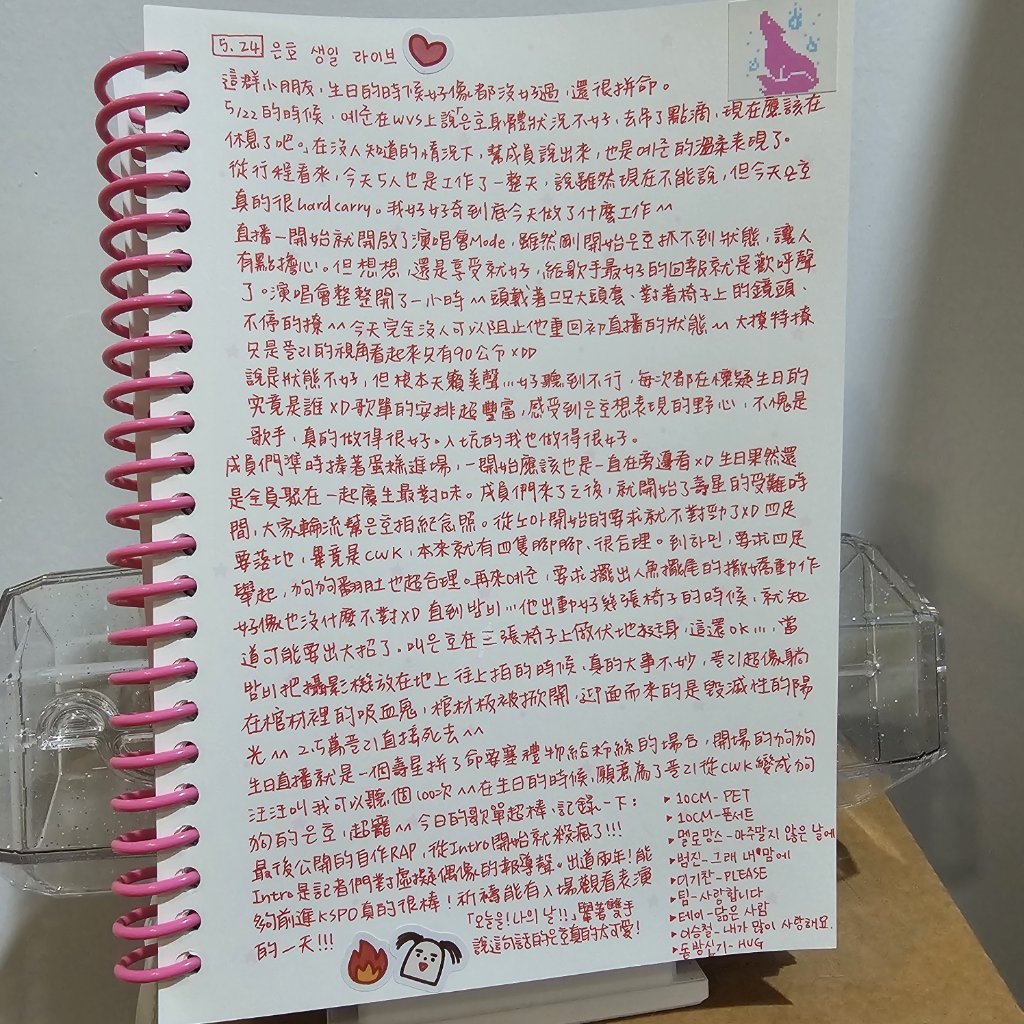 5.24 은호 생일 라이브
這群小朋友,生日的時候好像都沒好過,還很拼命。
5/22的時候,예준在WVS上說은호身體狀況不好,去吊了點滴,現在應該在
休息了吧。在沒人知道的情況下,幫成員說出來,也是예준的溫柔表現了。
從行程看來,今天5人也是工作了一整天,說雖然現在不能說,但今天은호
真的很hardcarry。我好好奇到底今天做了什麼工作^^
直播一開始就開啟了演唱會Mode,雖然剛開始은호抓不到狀態,讓人
有點擔心。但想想,還是享受就好,給歌手最好的回報就是歡呼聲
了。演唱會整整開了一小時^^頭戴著으르大頭套、對著椅子上的鏡頭、
不停的撩^^今天完全沒人可以阻止他重回初直播的狀態^^大撩特撩
只是플리的視角看起來只有90公分XDD
說是狀態不好,但根本天籟美聲...好聽到不行,每次都在懷疑生日的
究竟是誰XD歌單的安排超豐富,感受到은호想表現的野心,不愧是
歌手,真的做得很好。入坑的我也做得很好。
成員們準時捧著蛋糕進場,一開始應該也是一直在旁邊看XD生日果然還
是全員聚在一起慶生最對味。成員們來了之後,就開始了壽星的受難時
間,大家輪流幫은호拍紀念照。從노아開始的要求就不對勁了XD四足
要落地,畢竟是CWK,本來就有四隻腳腳、很合理。到하민,要求四足
舉起,狗狗翻肚也超合理。再來예준,要求擺出人魚擺尾的撒嬌動作
好像也沒什麼不對XD直到밤비...他出動好幾張椅子的時候,就知
道可能要出大招了。叫은호在三張椅子上做伏地挺身,這還OK...,當
밤비把攝影機放在地上往上拍的時候,真的大事不妙,플리超像躺
在棺材裡的吸血鬼,棺材板被掀開,迎面而來的是毀滅性的陽
光^^ 2.5萬플리直接死去^^
生日直播就是一個壽星拼了命要塞禮物給粉絲的場合,開場的狗狗
汪汪叫我可以聽個100次^^在生日的時候,願意為了플리從CWK變成狗
狗的은호,超寵^^今日的歌單超棒、記錄一下:
最後公開的自作RAP,從Intro開始就殺瘋了!!!
Intro是記者們對虛擬偶像的報導聲。出道兩年!能
夠前進KSPO真的很棒!祈禱能有入場觀看表演
的一天!!!
「오늘은!나의 날!!」舉著雙手
說這句話的은호真的太可愛!
▸10CM-PET
▸10CM-폰서트
▸멜로망스-아주말지 않은 날에
▸범진-그래 내 맘에
▸이기찬-PLEASE
▸팀-사랑합니다
▸테이-닮은 사람
▸이승철-내가 많이 사랑해요.
▸동방신기-HUG